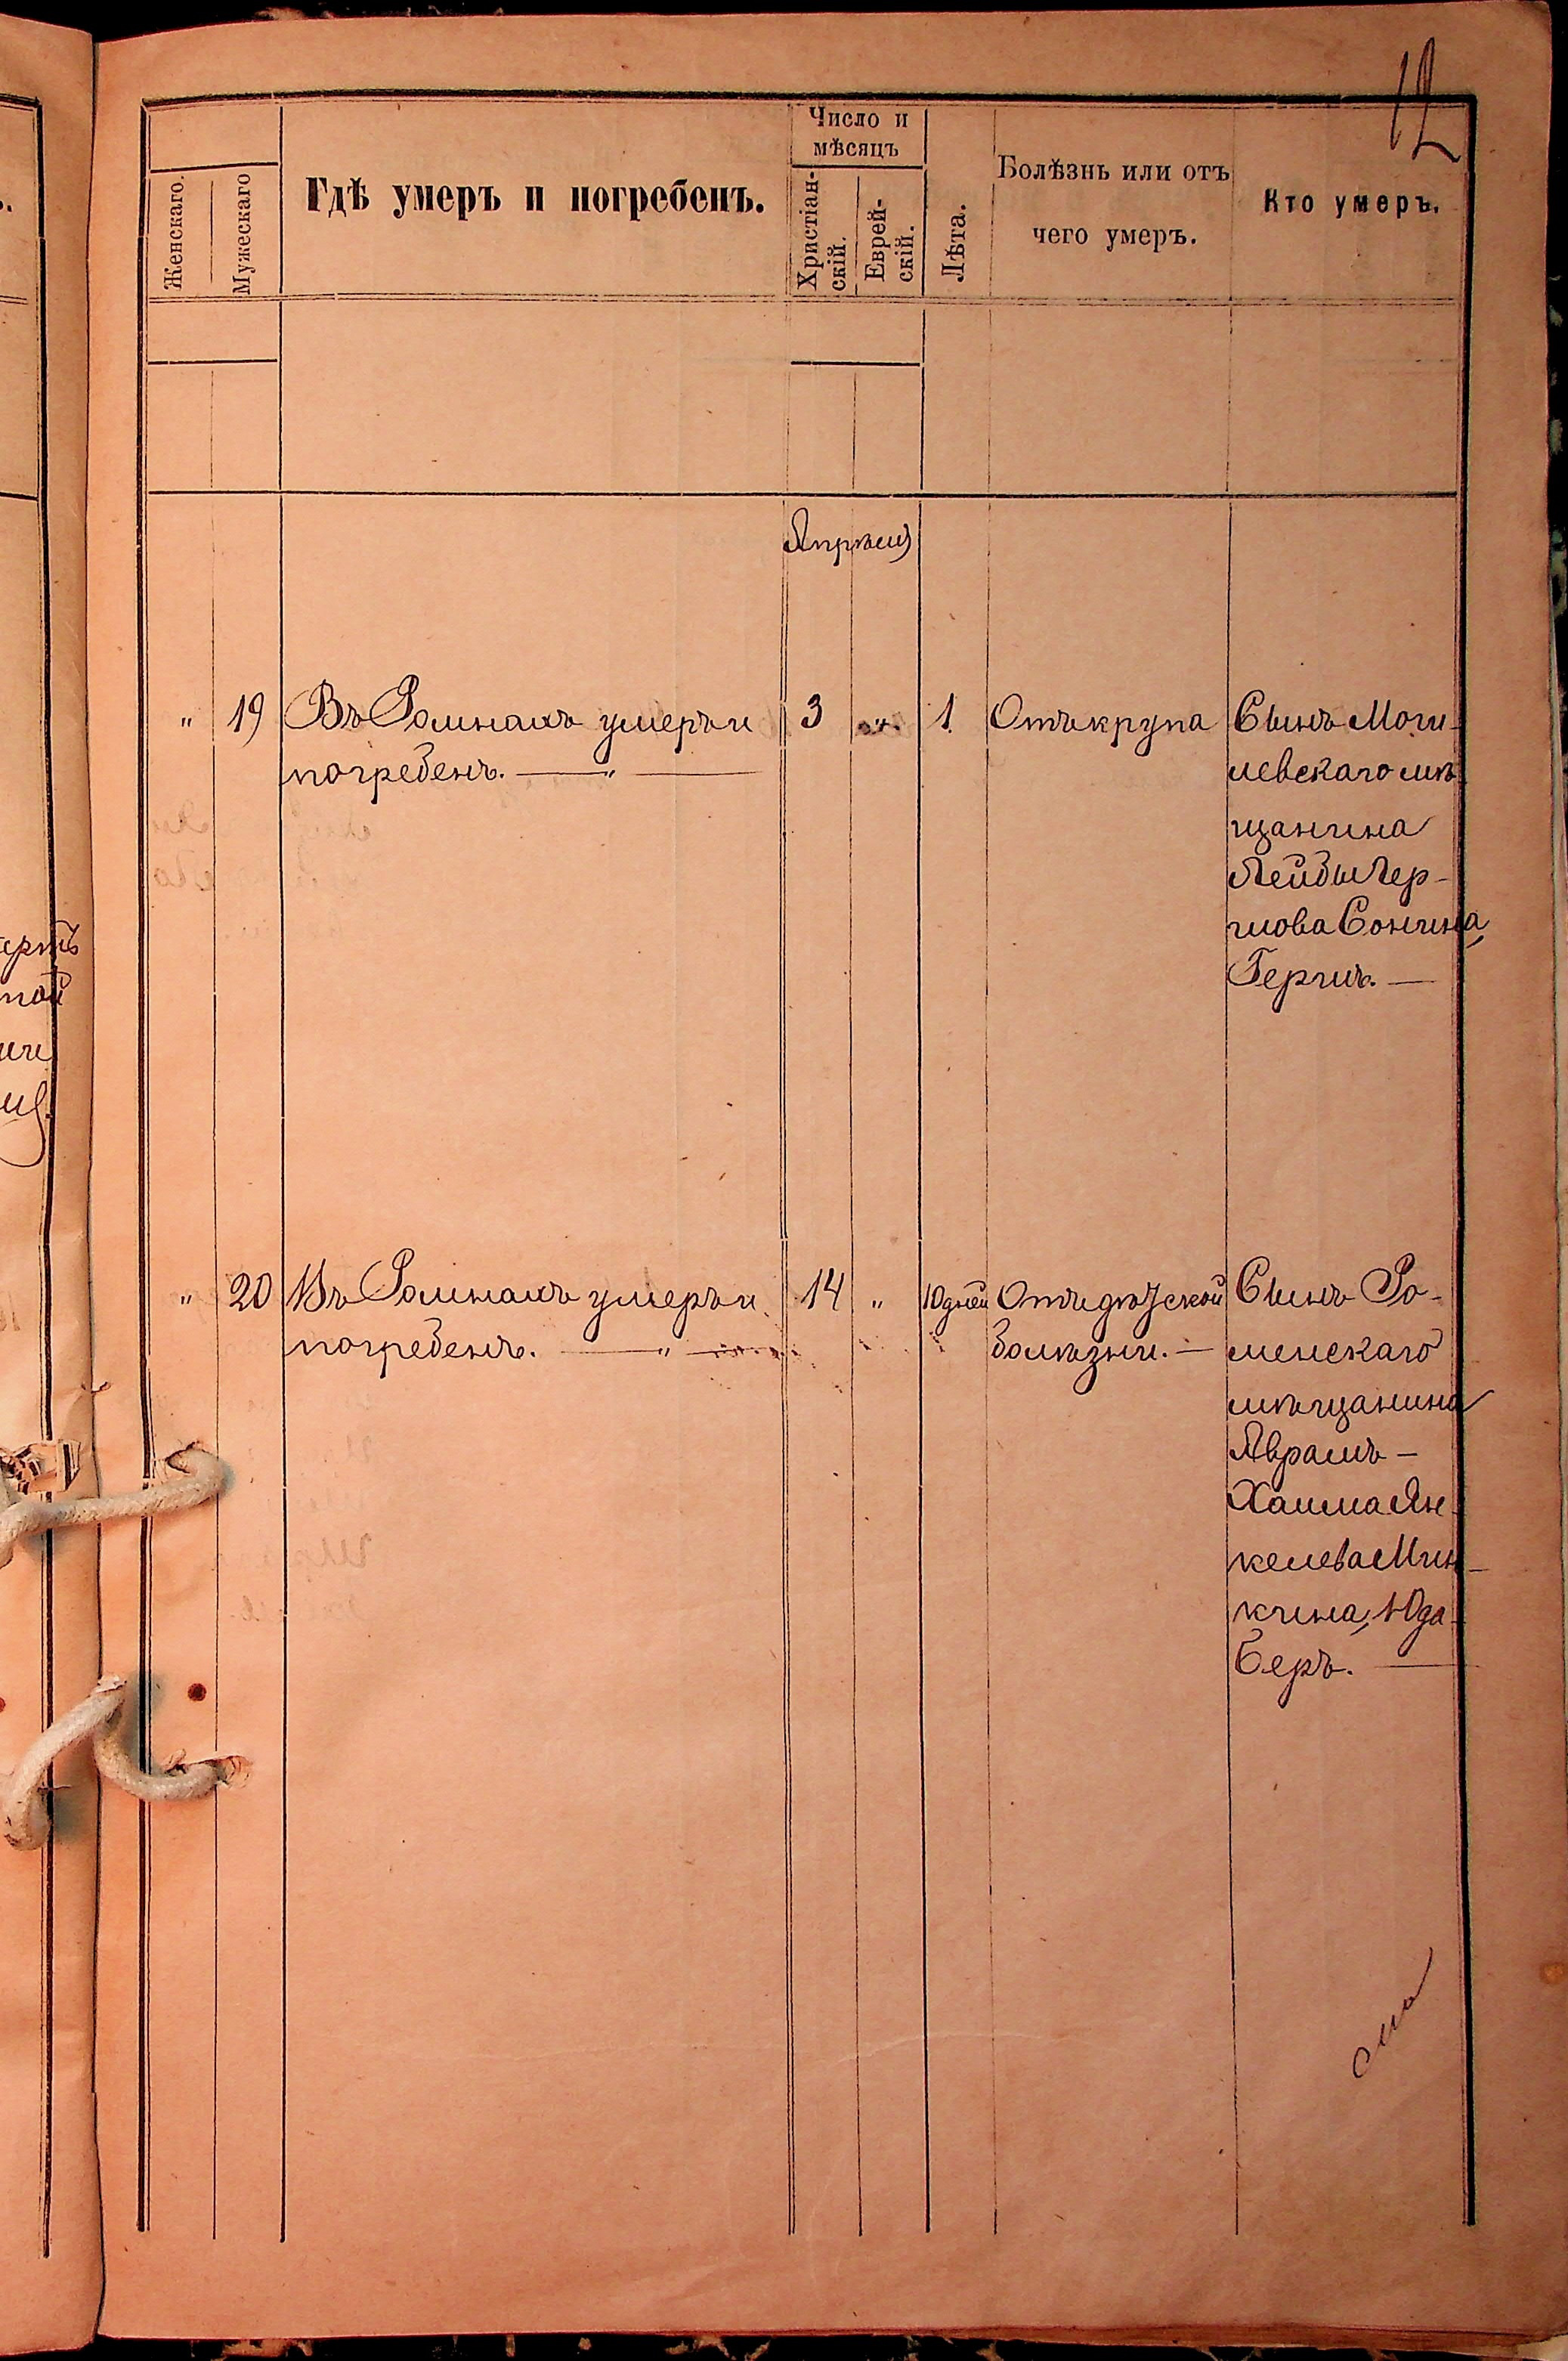 12
Женскаго.
Мужескаго
Гдѣ умеръ и погребенъ.
Число и
мѣсяцъ
Христіан-
скій.
Еврей-
скій.
Лѣта.
Болѣзнь или отъ
чего умеръ.
Кто умеръ.
Апрѣль
" 19 Въ Ромнахъ умеръ и 3 " 1 Отъ крупа Сынъ Моги-
погребенъ. — " — левскаго мѣ-
щанина
Лейбы Гер-
шова Сонина,
Гершъ. —
" 20 Въ Ромнахъ умеръ и 14 " 10 дней Отъ дѣтской Сынъ Ро-
погребенъ. — " — болѣзни. — менскаго
мѣщанина
Аврамъ-
Хаима Ян-
келева Мин-
кина, Юда
Беръ. —